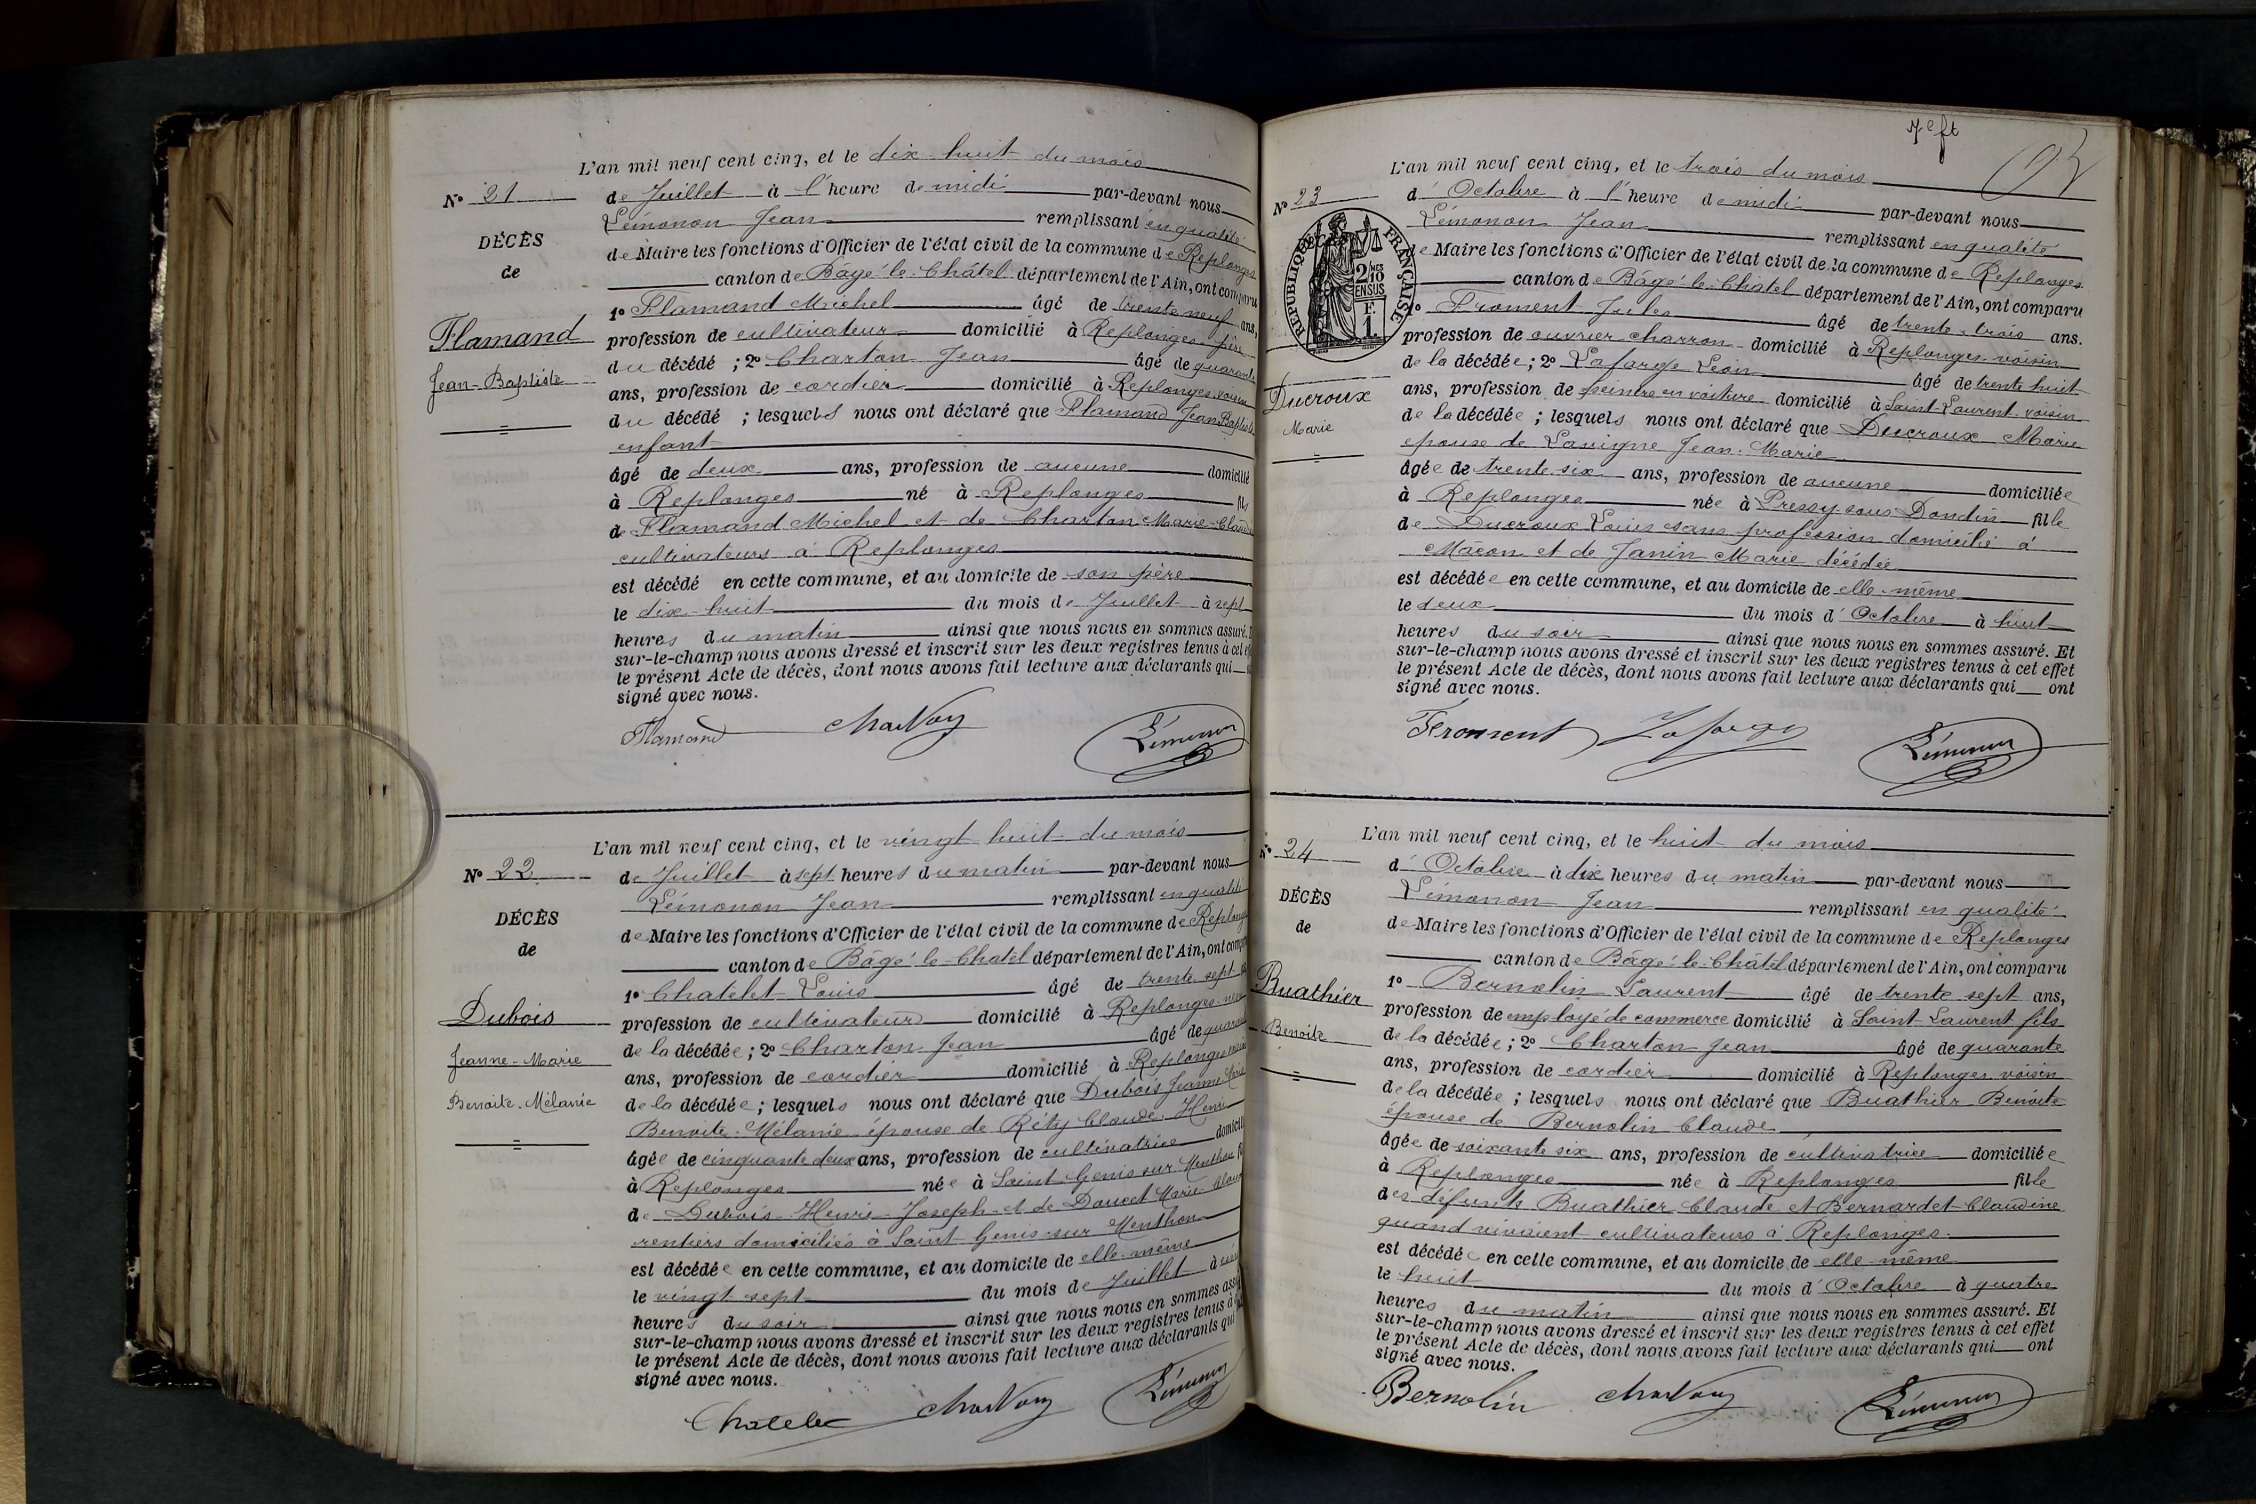 L'an mil neuf cent cinq, et le dix-huit du mois
N° 21
de Juillet à l'heure de midi par-devant nous
Lémonon Jean remplissant en qualité
DÉCÈS
de Maire les fonctions d'Officier de l'état civil de la commune de Replonges
de
canton de Bâgé-le-Châtel département de l'Ain, ont comparu
1° Flamand Michel âgé de trente neuf ans,
Flamand
profession de cultivateur domicilié à Replonges père
du décédé ; 2° Charton Jean âgé de quarante
Jean-Baptiste
ans, profession de cordier domicilié à Replonges voisin
du décédé ; lesquels nous ont déclaré que Flamand Jean Baptiste
enfant
âgé de deux ans, profession de aucune domicilié
à Replonges né à Replonges fils
de Flamand Michel et de Charton Marie-Claudine
cultivateurs à Replonges
est décédé en cette commune, et au domicile de son père
le dix-huit du mois de Juillet à sept
heures du matin ainsi que nous nous en sommes assuré.
sur-le-champ nous avons dressé et inscrit sur les deux registres tenus à cet
le présent Acte de décès, dont nous avons fait lecture aux déclarants qui
signé avec nous.
Flamand Charton Lémonon
L'an mil neuf cent cinq, et le vingt huit du mois
N° 22
de Juillet à sept heures du matin par-devant nous
Lémonon Jean remplissant en qualité
DÉCÈS
de Maire les fonctions d'Officier de l'état civil de la commune de Replonges
de
canton de Bâgé-le-Chatel département de l'Ain, ont comparu
1° Chatelet Louis âgé de trente-sept
Dubois
profession de cultivateur domicilié à Replonges
de la décédée ; 2° Charton Jean âgé de quarante
Jeanne-Marie
ans, profession de cordier domicilié à Replonges
Benoite-Mélanie
de la décédée ; lesquels nous ont déclaré que Dubois Jeanne Marie
Benoite-Mélanie épouse de Réty Claude-Henri
âgée de cinquante deux ans, profession de cultivatrice domicili
à Replonges née à Saint Genis sur Menthon
de Dubois Henri-Joseph et de Doucet Marie
rentiers domiciliés à Saint Genis-sur Menthon
est décédée en cette commune, et au domicile de elle-même
le vingt sept du mois de Juillet à
heures du soir ainsi que nous nous en sommes
sur-le-champ nous avons dressé et inscrit sur les deux registres tenus à
le présent Acte de décès, dont nous avons fait lecture aux déclarants qui
signé avec nous.
Chatelet Charton Lémonon
7e ft
L'an mil neuf cent cinq, et le trois du mois
N° 23
d'Octobre à l'heure de midi par-devant nous
Lémonon Jean remplissant en qualité
RÉPUBLIQUE FRANÇAISE
2 MES 10 EN SUS
F. 1.
de Maire les fonctions d'Officier de l'état civil de la commune de Replonges
canton de Bâgé-le-Châtel département de l'Ain, ont comparu
1° Froment Jules âgé de trente-trois ans.
profession de ouvrier charron domicilié à Replonges voisin
de la décédée ; 2° Lafarge Léon âgé de trente huit
Ducroux
ans, profession de peintre en voiture domicilié à Saint-Laurent voisin
Marie
de la décédée ; lesquels nous ont déclaré que Ducroux Marie
épouse de Lavigne Jean-Marie
âgée de trente-six ans, profession de aucune domiciliée
à Replonges née à Pressy-sous-Dondin fille
de Ducroux Louis sans profession domicilié à
Mâcon et de Janin Marie décédée
est décédée en cette commune, et au domicile de elle-même
le deux du mois d'Octobre à huit
heures du soir ainsi que nous nous en sommes assuré. Et
sur-le-champ nous avons dressé et inscrit sur les deux registres tenus à cet effet
le présent Acte de décès, dont nous avons fait lecture aux déclarants qui ont
signé avec nous.
Froment Lafarge Lémonon
L'an mil neuf cent cinq, et le huit du mois
N° 24
d'Octobre à dix heures du matin par-devant nous
Lémonon Jean remplissant en qualité
DÉCÈS
de Maire les fonctions d'Officier de l'état civil de la commune de Replonges
de
canton de Bâgé-le-Châtel département de l'Ain, ont comparu
1° Bernolin Laurent âgé de trente sept ans,
Buathier
profession de employé de commerce domicilié à Saint-Laurent fils
Benoite
de la décédée ; 2° Charton Jean âgé de quarante
ans, profession de cordier domicilié à Replonges voisin
de la décédée ; lesquels nous ont déclaré que Buathier Benoite
épouse de Bernolin Claude
âgée de soixante six ans, profession de cultivatrice domiciliée
à Replonges née à Replonges fille
des défunts Buathier Claude et Bernardet Claudine
quand vivaient cultivateurs à Replonges.
est décédée en cette commune, et au domicile de elle-même
le huit du mois d'Octobre à quatre
heures du matin ainsi que nous nous en sommes assuré. Et
sur-le-champ nous avons dressé et inscrit sur les deux registres tenus à cet effet
le présent Acte de décès, dont nous avons fait lecture aux déclarants qui ont
signé avec nous.
Bernolin Charton Lémonon